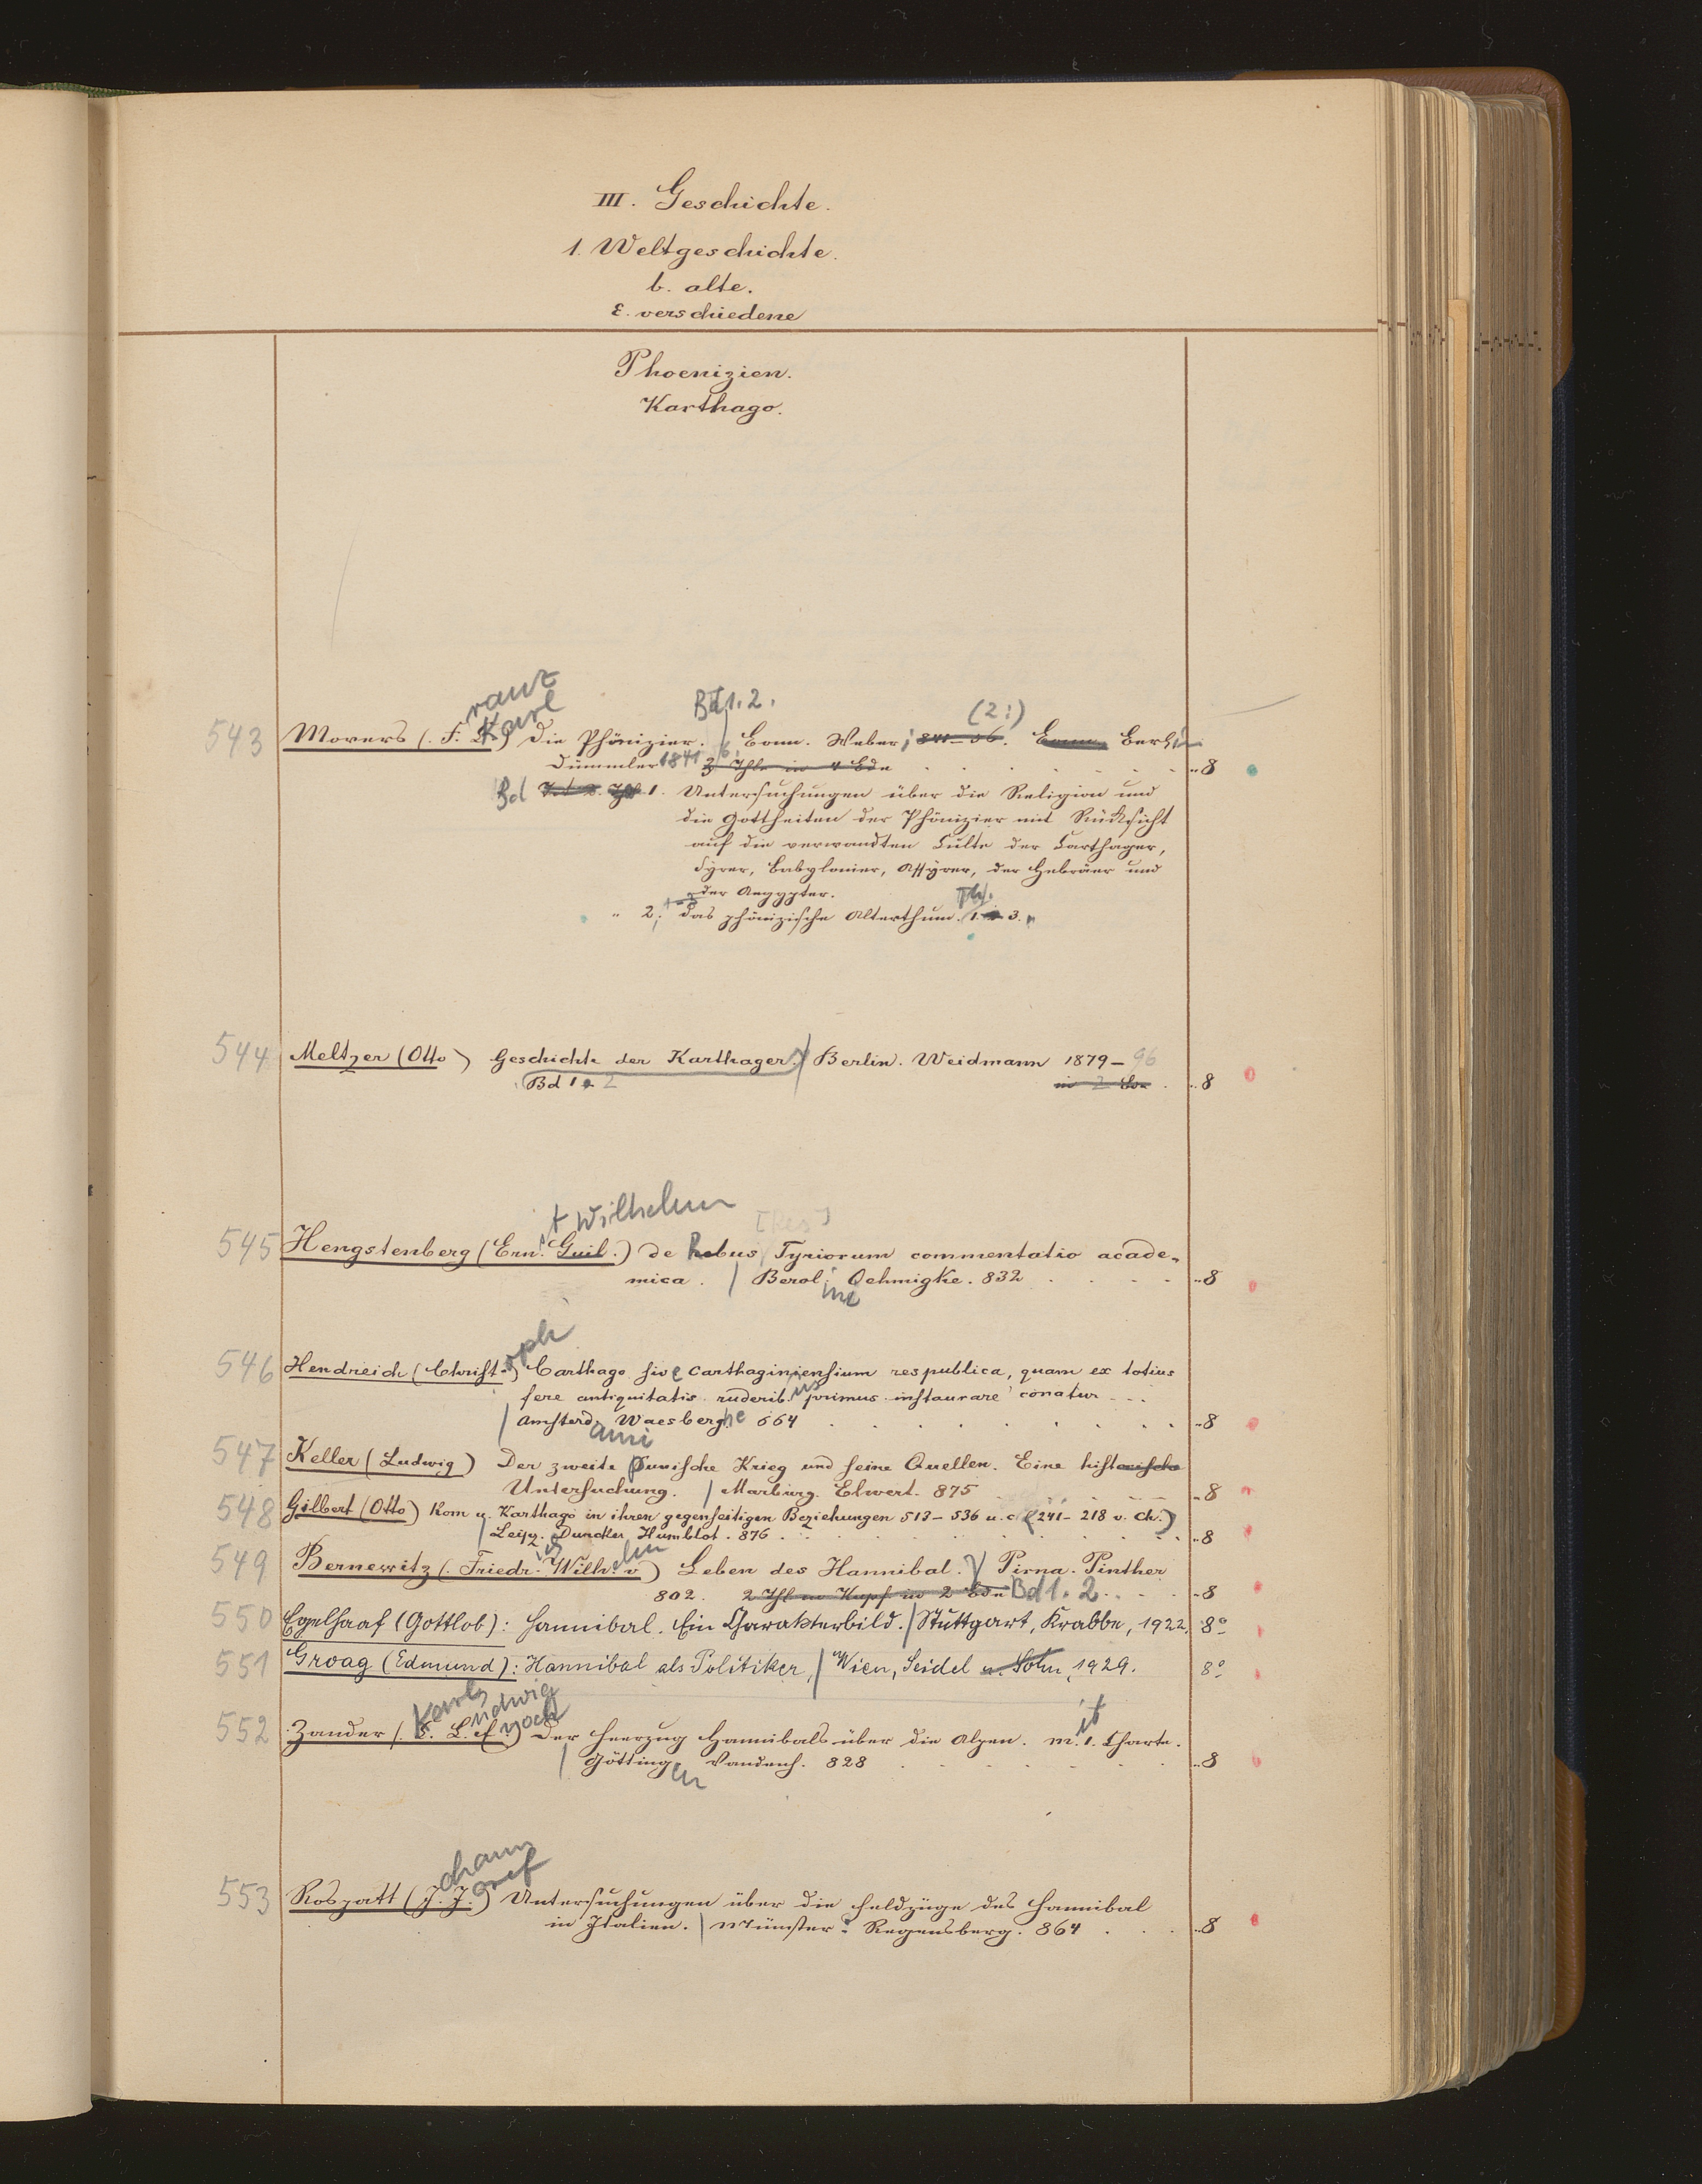 III. Geschichte.
1. Weltgeschichte.
b. alte.
ε. verschiedene
Phoenizien.
Karthago.
ranz Karl
Bd 1. 2. (2:)
543 Movers (. F. K.) Die Phönizier. / Bonn. Weber; 841–56. Bonn Berlin
Dümmler 1841 3 Thle in 4 Bdn 8
Bd 1. Untersuchungen über die Religion und
die Gottheiten der Phönizier mit Rücksicht
auf die verwandten Culte der Carthager,
Syrer, Babylonier, Assyrer, der Hebräer und
der Aegypter.
" 2. das phönizische Alterthum. Th. 1 3.
544 Meltzer (Otto) Geschichte der Karthager. / Berlin. Weidmann 1879–96
Bd 1. 2 in 2 Bdn 8
t Wilhelm
545 Hengstenberg (Ern. Guil.) de Rebus Tyriorum commentatio acade-
mica. / Berol. Oehmigke. 832 8
ini
oph
546 Hendreich (Christ.) Carthago sive Carthaginiensium respublica, quam ex totius
fere antiquitatis ruderib. us primus instaurare conatur ...
/ Amsterd. Waesberghe 664 8
ami
547 Keller (Ludwig) Der zweite punische Krieg und seine Quellen. Eine historische
Untersuchung. / Marburg. Elwert. 875 8
548 Gilbert (Otto) Rom u. Karthago in ihren gegenseitigen Beziehungen 513–536 u. c. (241–218 v. Ch.)
/ Leipz. Duncker Humblot. 876 8
549 Bernewitz (. Friedr. Wilh. elm v) Leben des Hannibal. / Pirna. Pinther
802. 2 Thl m Kupf in 2 Bdn Bd 1. 2 8
550 Egelhaaf (Gottlob): Hannibal. Ein Charakterbild. / Stuttgart, Krabbe, 1922. 8°
551 Groag (Edmund): Hannibal als Politiker, / Wien, Seidel u. Sohn, 1929. 8°
Karl udwig noch
552 Zander (. C. L. E.) Der Heerzug Hannibals über die Alpen. m. it 1. Charte.
/ Götting en Vandenh. 828 8
ohann osef
553 Rospatt (J. J.) Untersuchungen über die Feldzüge des Hannibal
in Italien. / Münster. Regensberg. 864 8